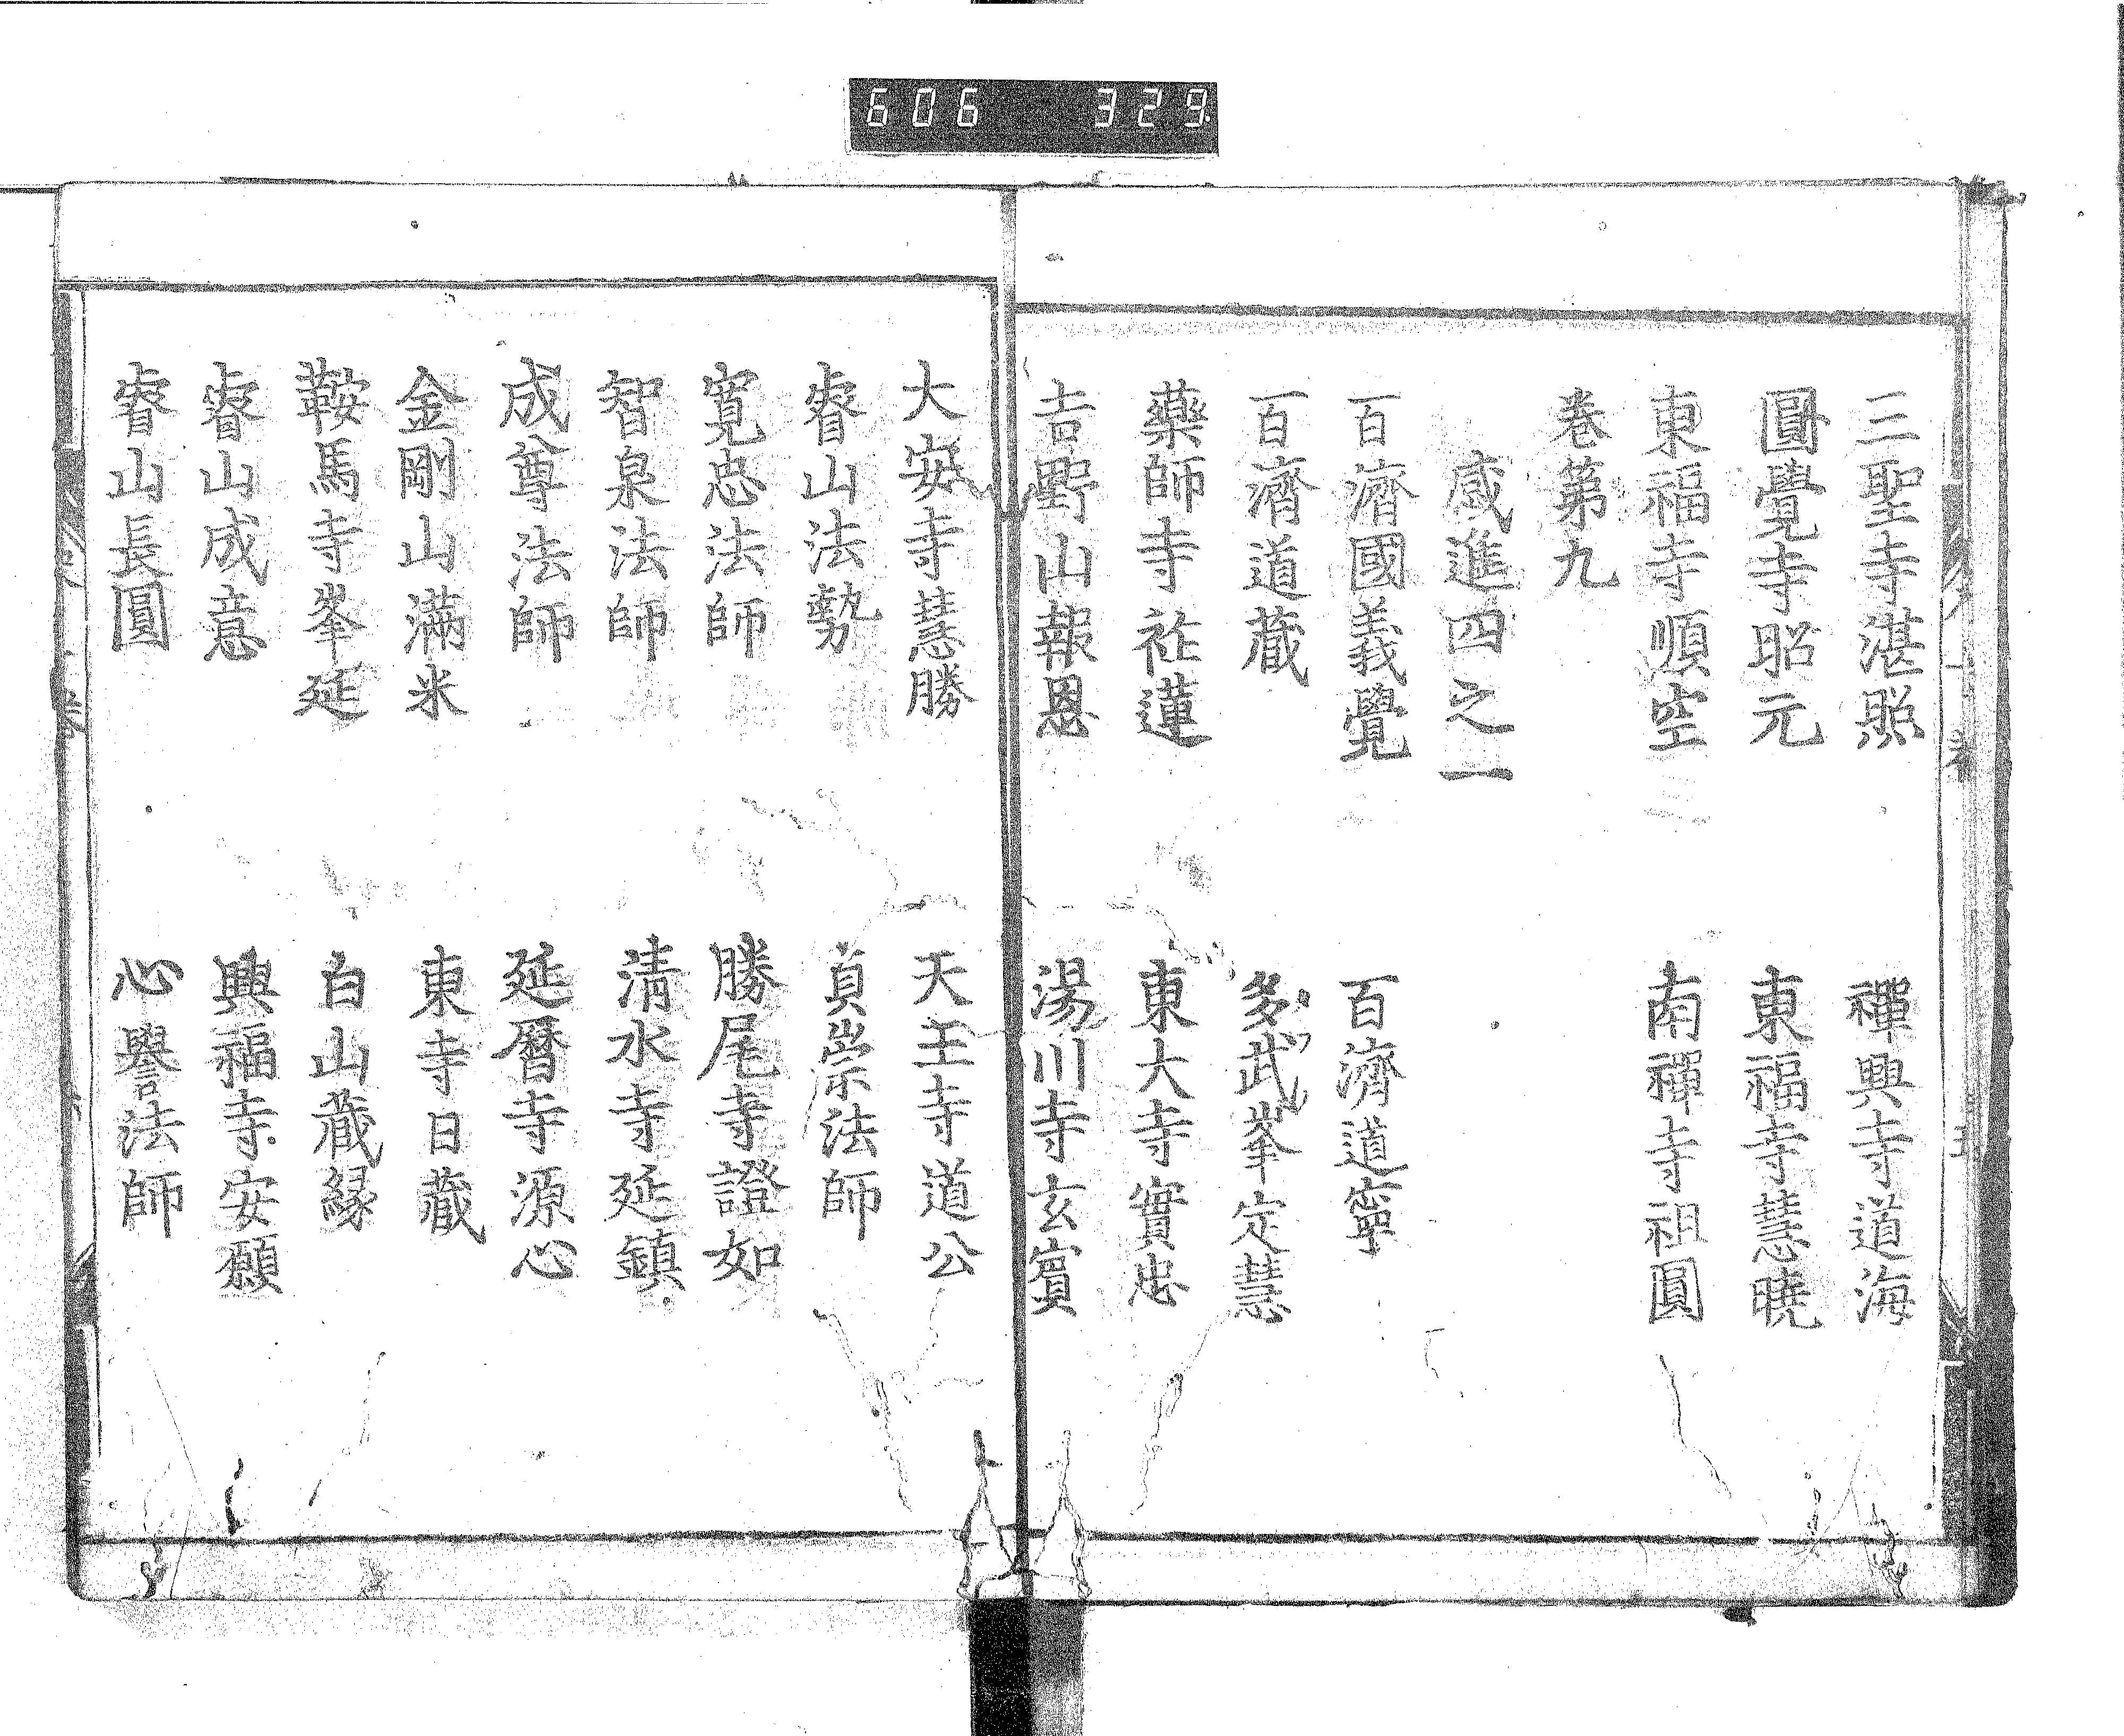 606 329
三聖寺湛照 禪興寺道海
圓覺寺昭元 東福寺慧曉
東福寺順空 南禪寺祖圓
卷第九
感進四之一
百濟國義覺 百濟道寧
百濟道藏 多武峯定慧
藥師寺祚蓮 東大寺實忠
吉野山報恩 湯川寺玄賓
大安寺慧勝 天王寺道公
睿山法勢 貞崇法師
寬忠法師 勝尾寺證如
智泉法師 清水寺延鎮
成尊法師 延曆寺源心
金剛山滿米 東寺日藏
鞍馬寺峯延 白山藏緣
睿山成意 興福寺安願
睿山長圓 心譽法師